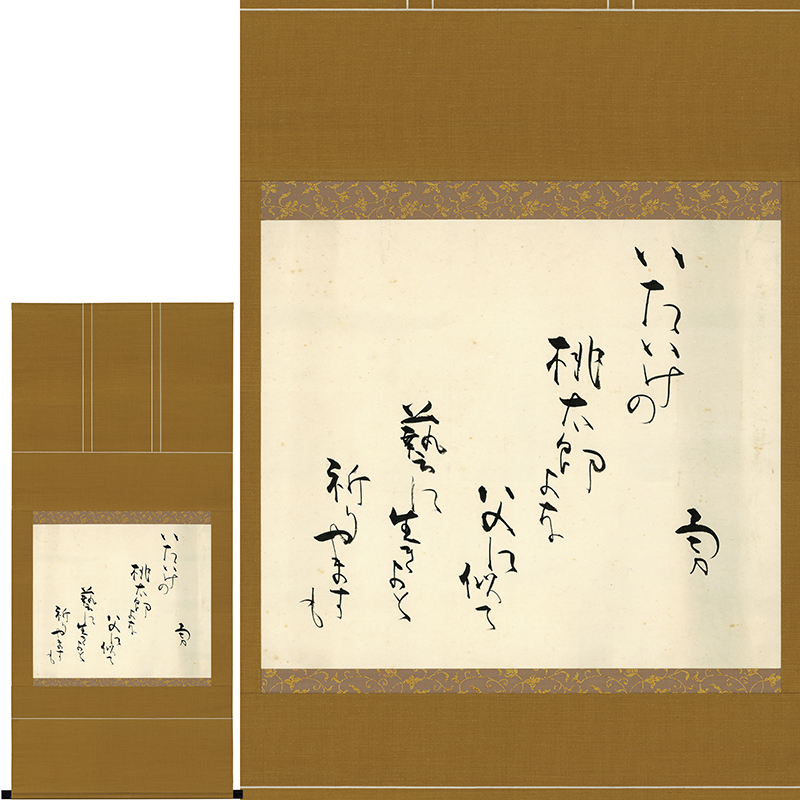 いたいけの
桃太郎よな
父に似て
藝に生きよと
祈りやまずも
勇